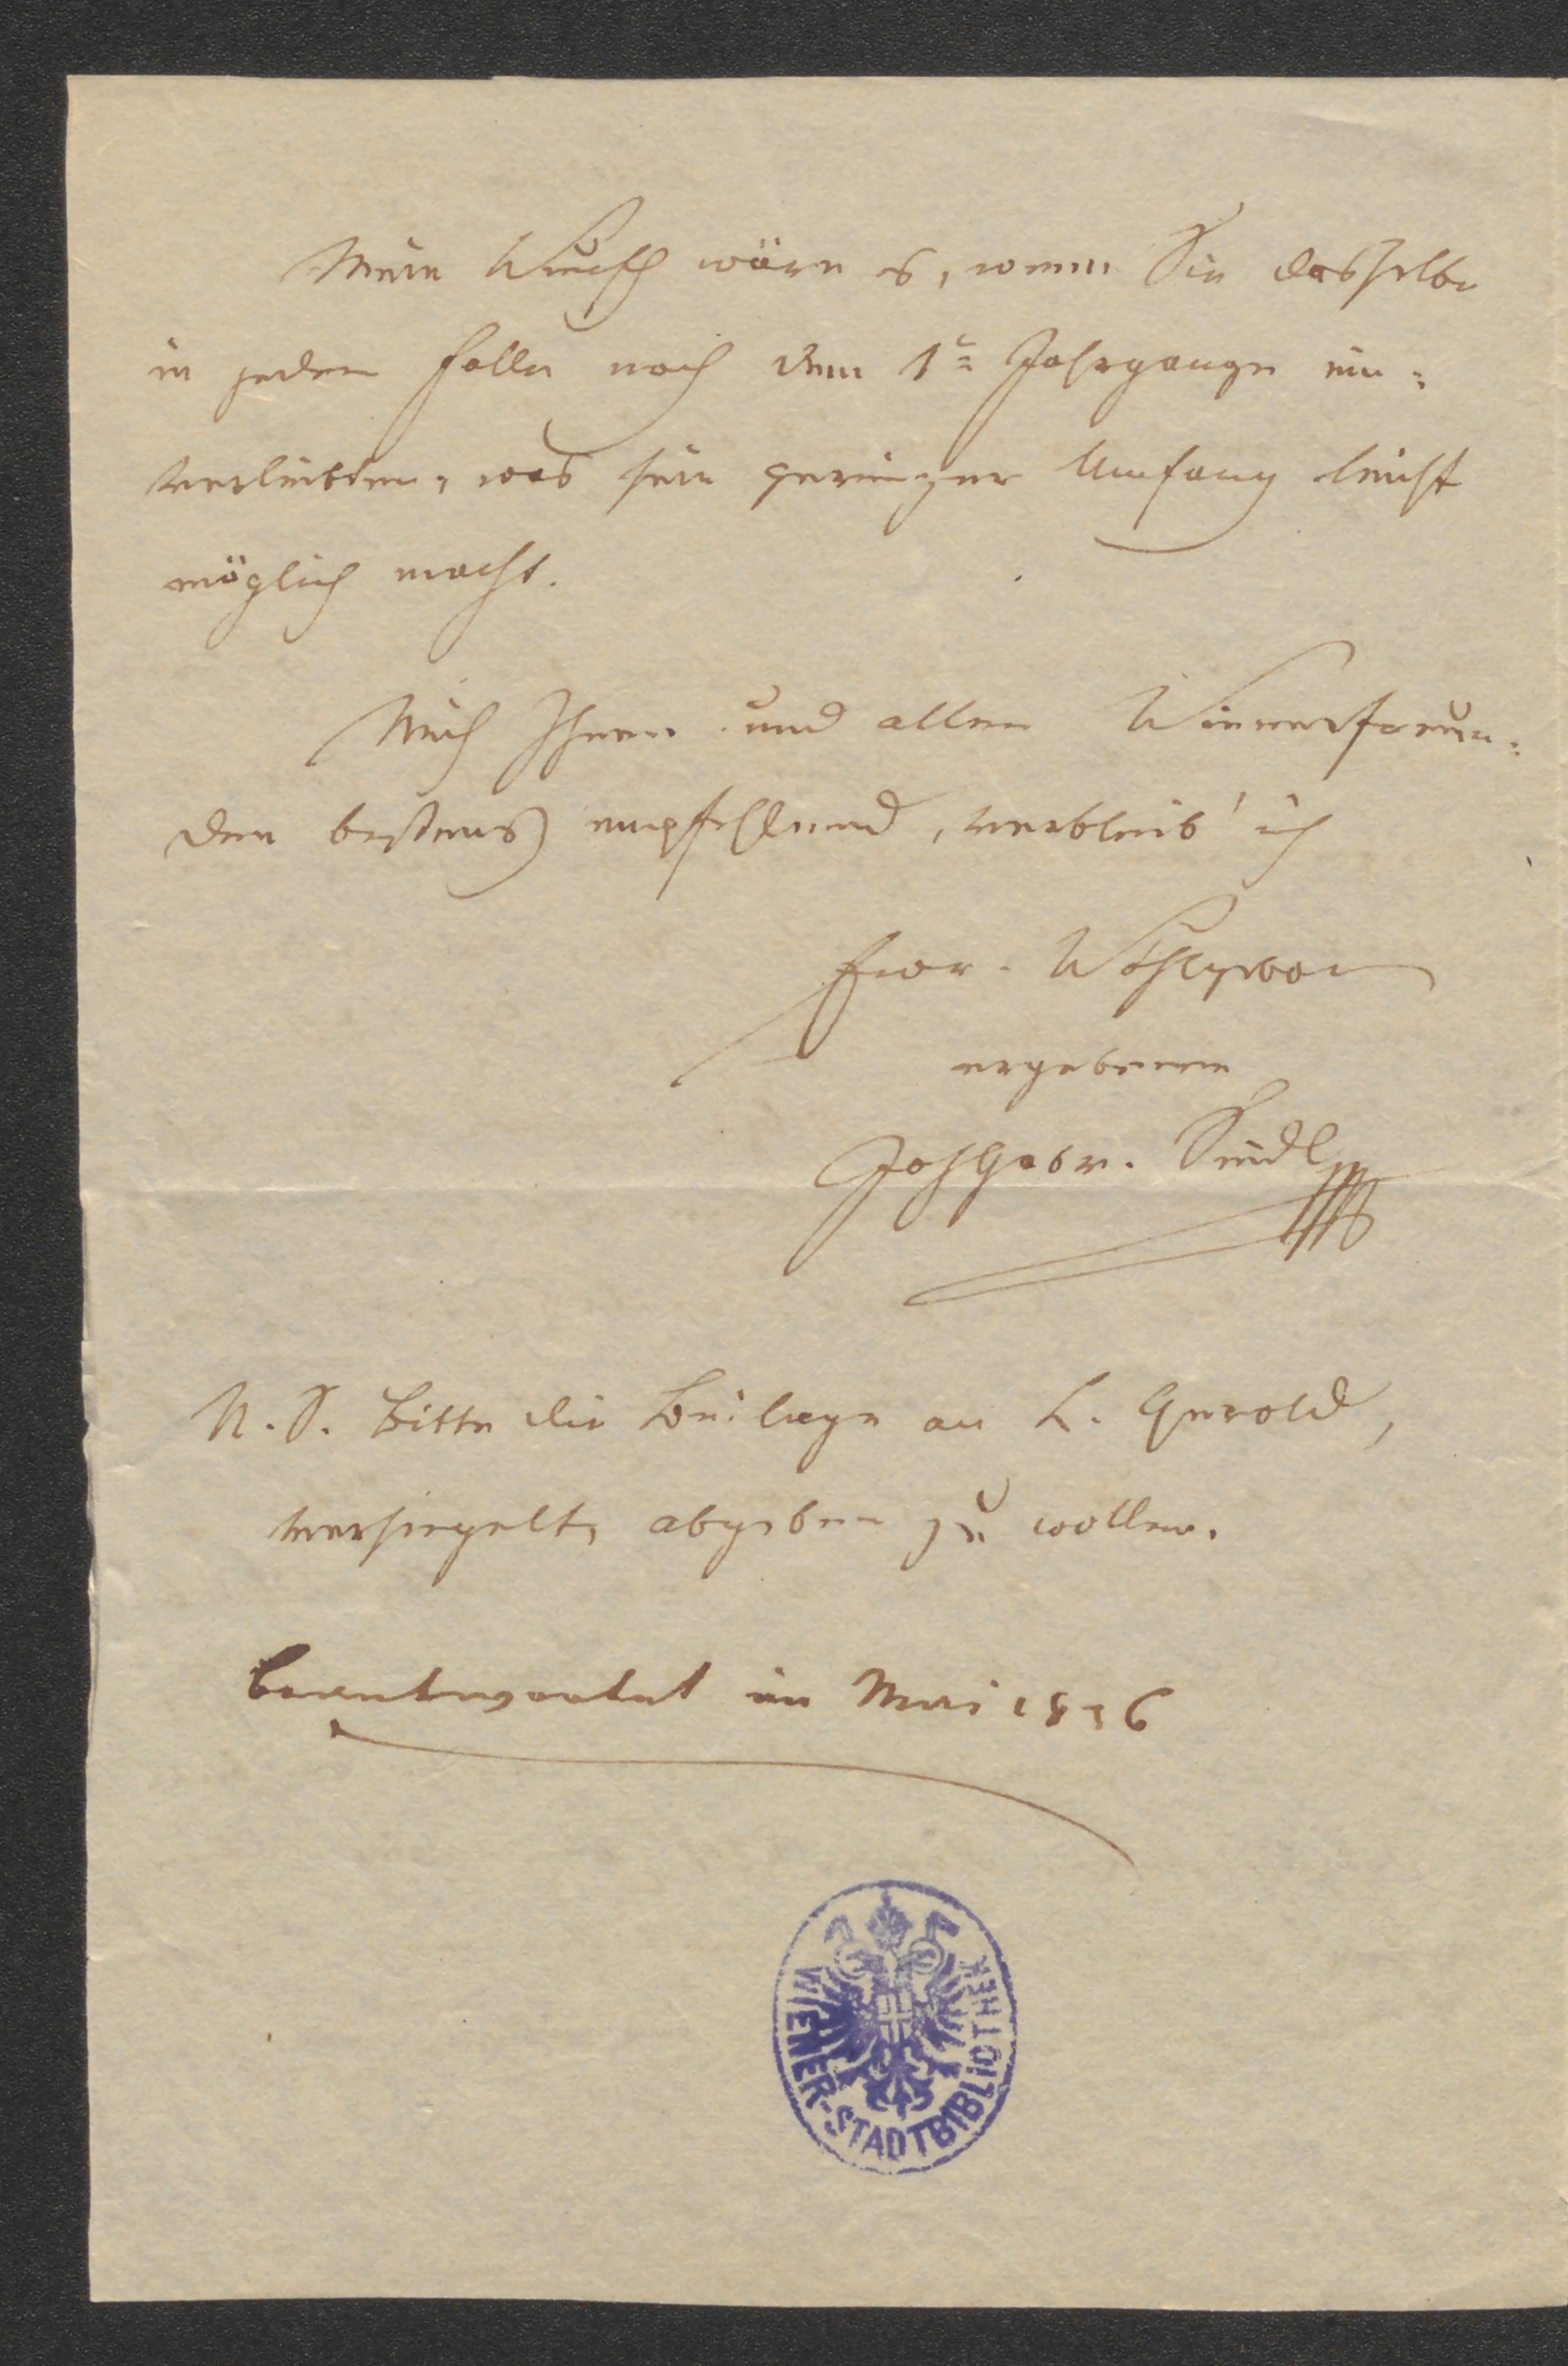 Mein Wunsch wäre es, wenn Sie dasselbe
in jedem Falle noch dem 1t= Jahrgange ein=
verleibten, was sein geringer Umfang leicht
möglich macht.
Mich Ihnen und allen Wienerfreun=
den bestens empfehlend, verbleib' ich
Euer. Wohlgebor
ergebener
Joh Gabr. Seidl
N. S. Bitte die Beilage an H. Gerold,
versiegelt, abgeben zu wollen.
Beantwortet im Mai 1836
WIENER-STADTBIBLIOTHEK